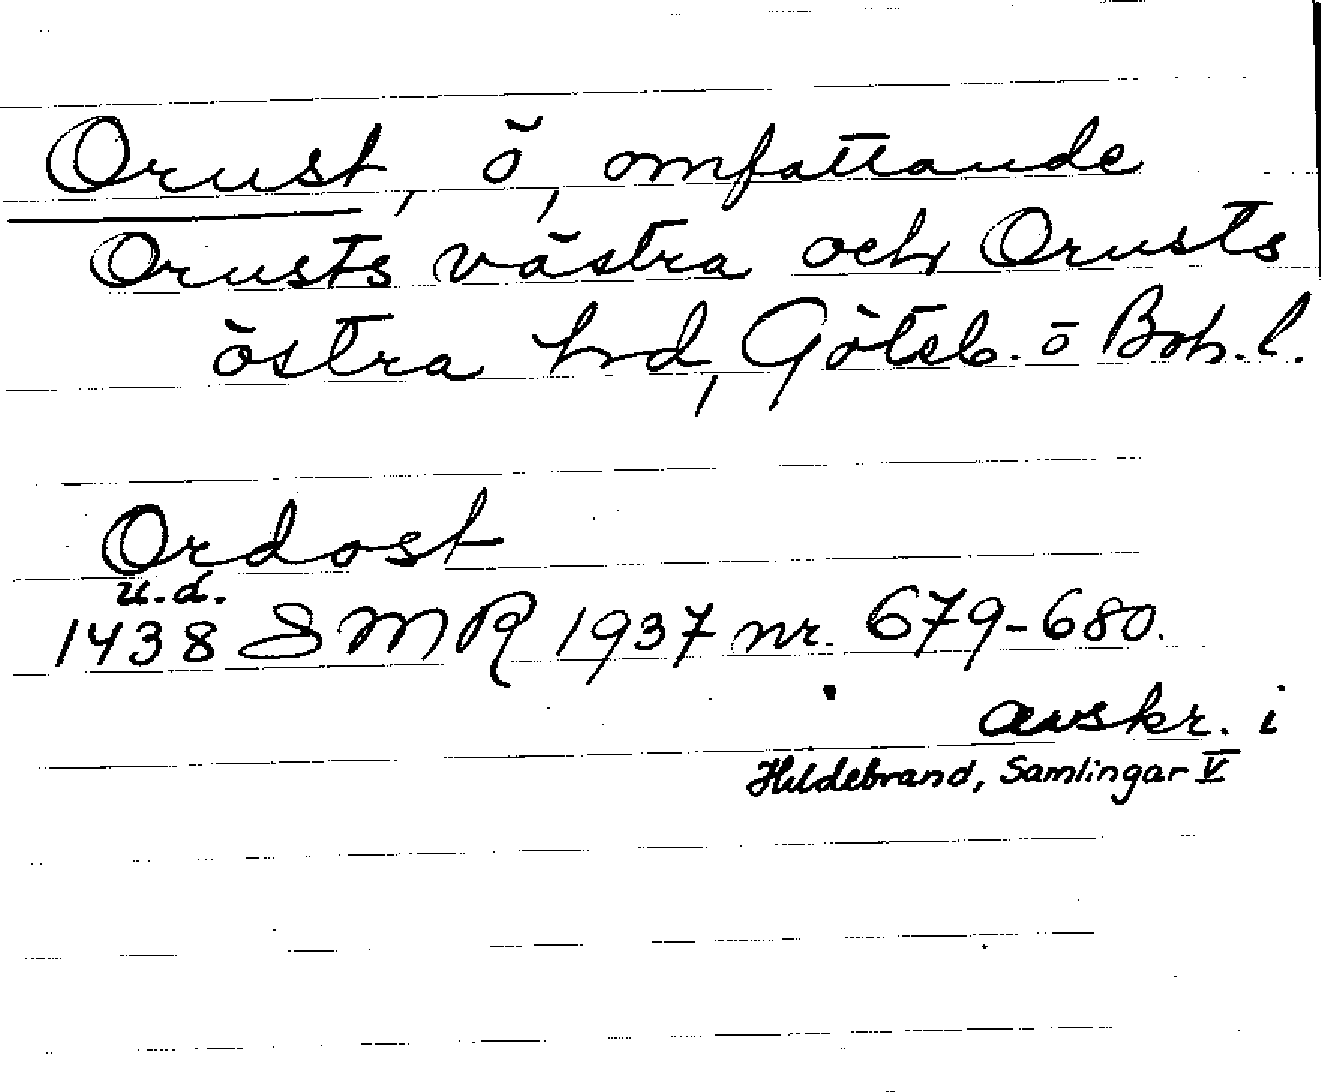 Orust, ö, omfattande
Orusts västra och Orusts
östra hrd, Götеb. ö Boh. l.
Ordost
u.d.
1438 SMR 1937 nr. 679-680.
avskr. i
Hildebrand, Samlingar V